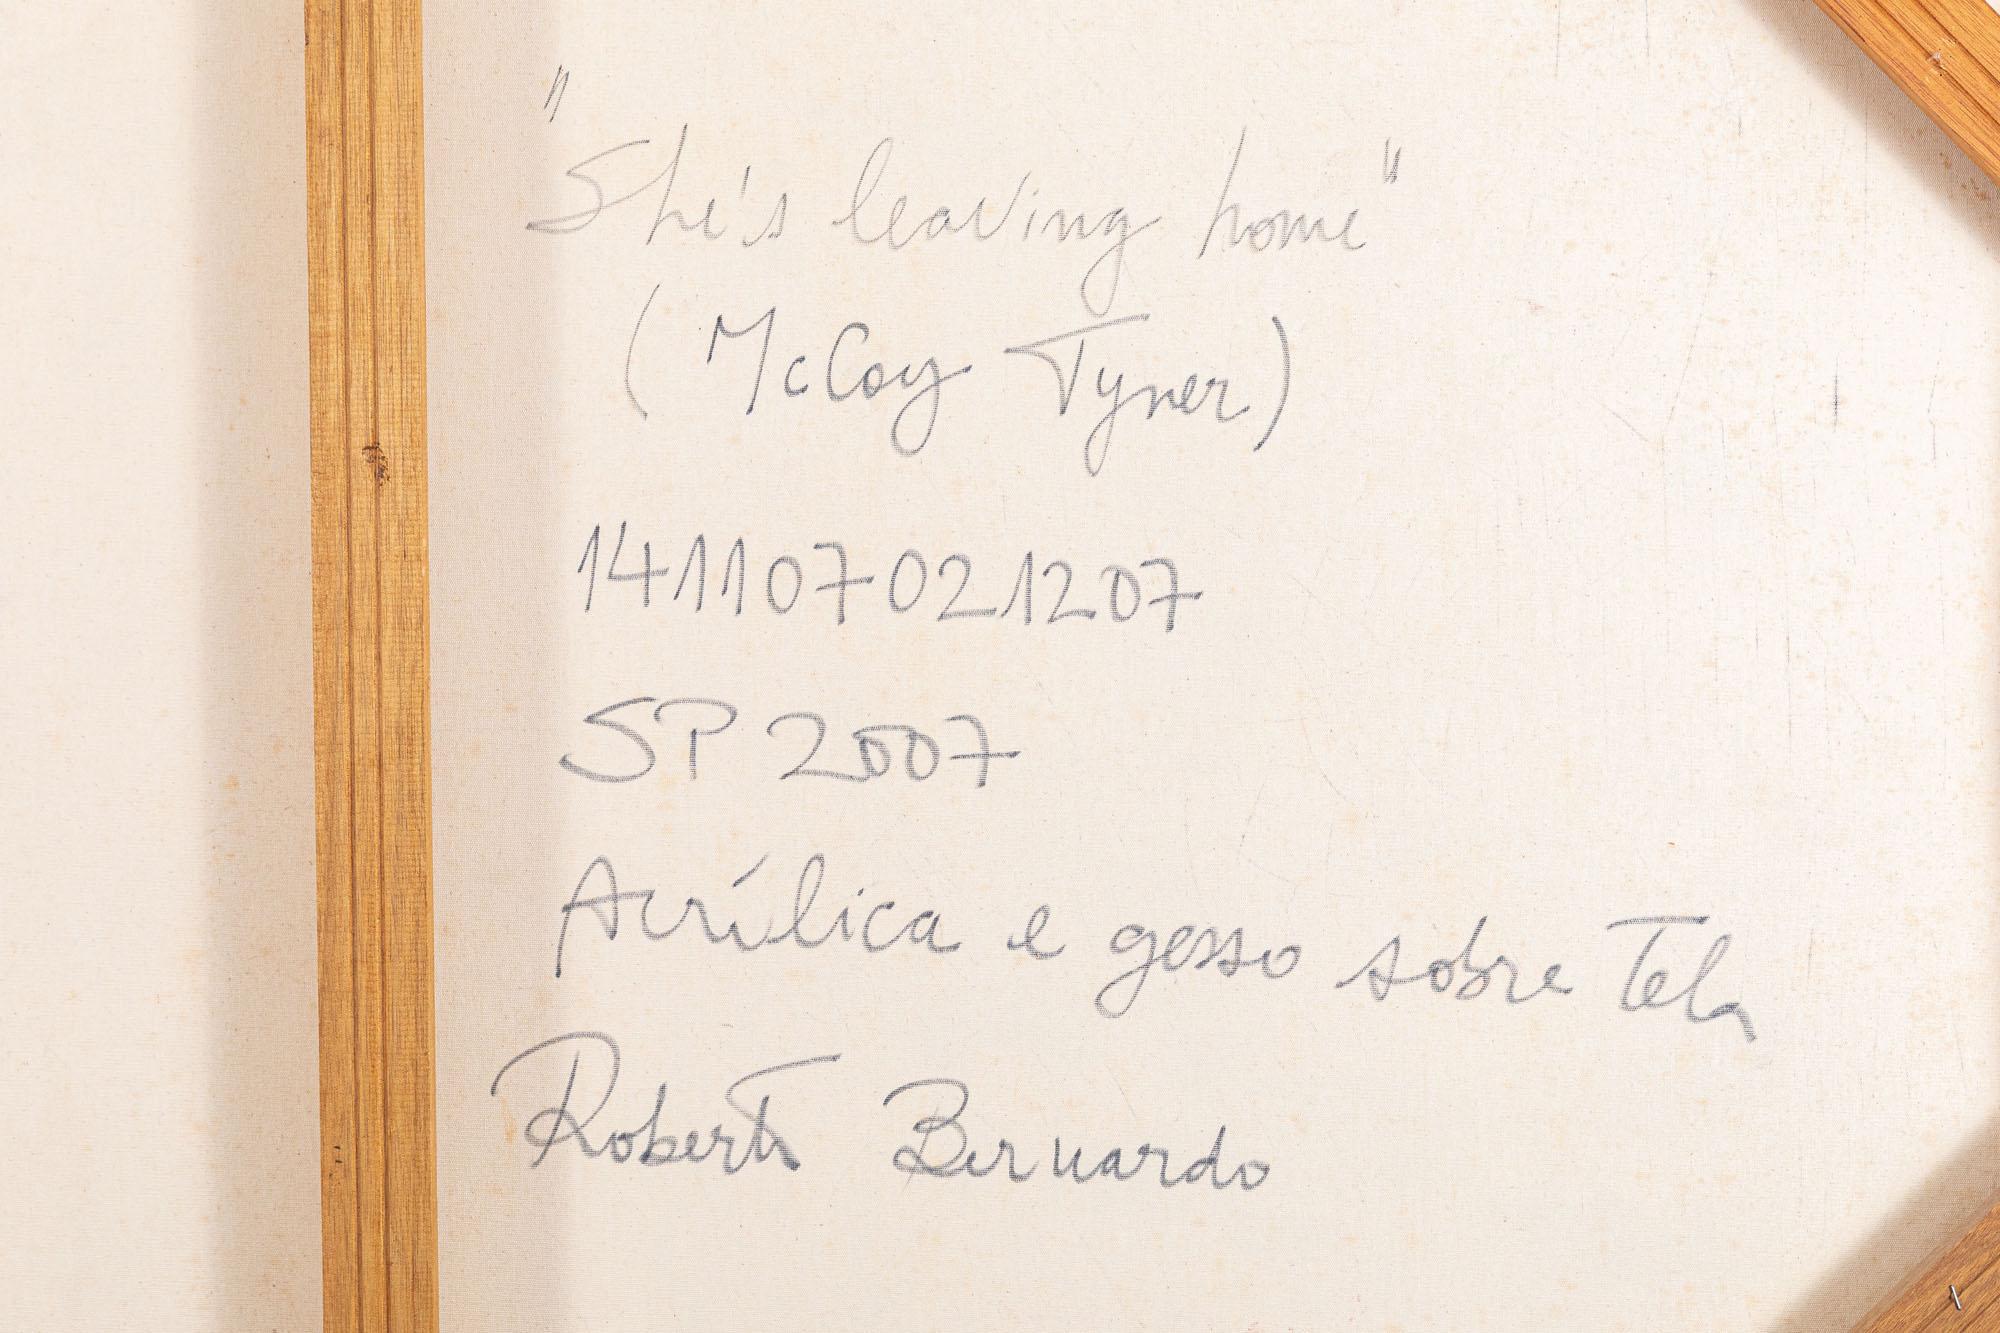 "She's leaving home"
(McCoy Tyner)
141107021207
SP 2007
Acrílica e gesso sobre Tela
Roberto Bernardo